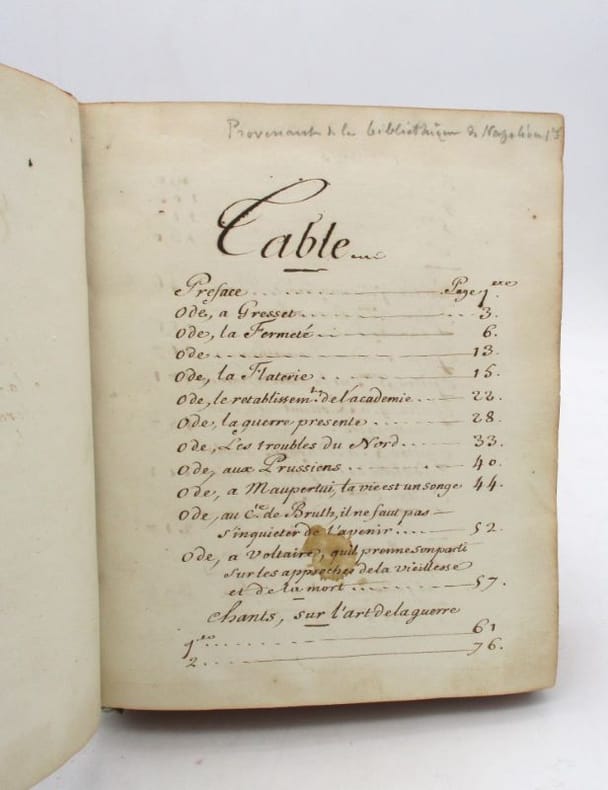 Provenant de la bibliothèque de Napoléon 1er
Table
Preface Page 1ere
Ode, a Gresset 3.
Ode, la Fermeté 6.
Ode 13.
Ode, la Flaterie 15.
Ode, le retablissemt. de l'academie 22.
Ode, la guerre presente 28.
Ode, Les troubles du Nord 33.
Ode, aux Prussiens 40
Ode, a Maupertui, la vie est un songe 44.
Ode, au Cte. de Bruth, il ne faut pas
s'inquieter de l'avenir 52.
Ode, a Voltaire, qu'il prenne son parti
sur les approches de la vieillesse
et de la mort 57.
Chants, sur l'art de la guerre
1ero 61
2. 76.